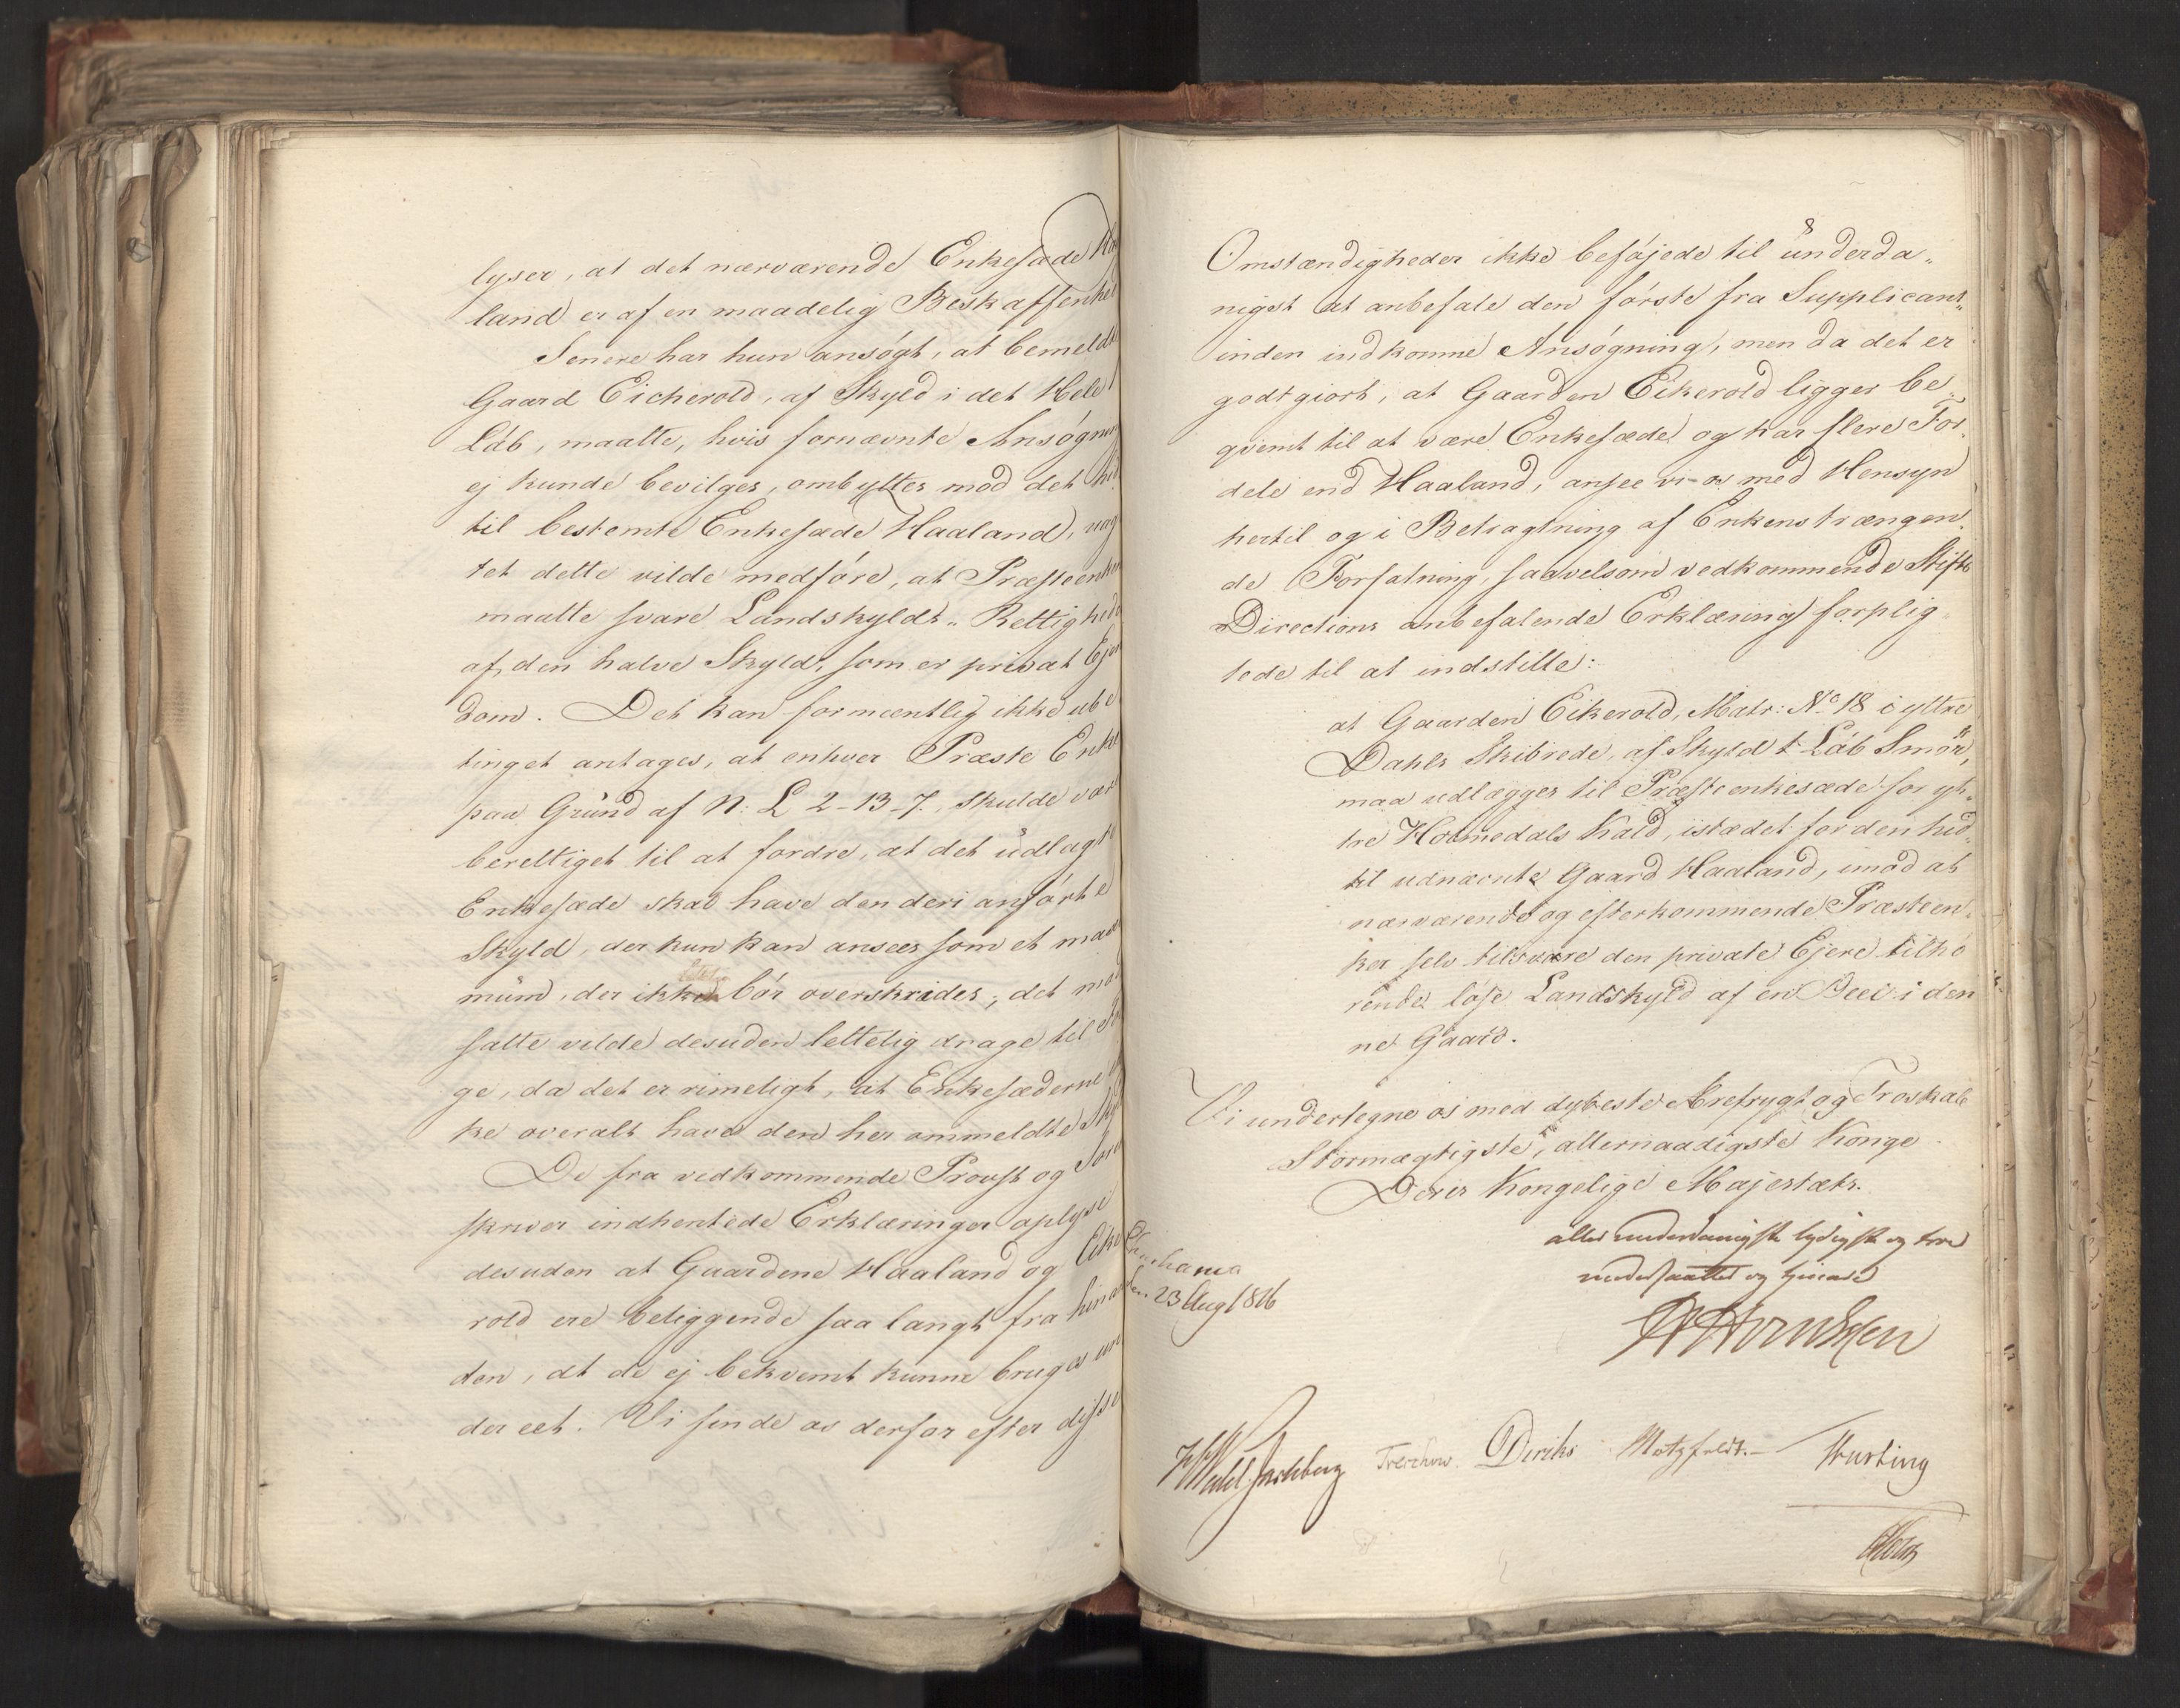 lyser, at det nærværende Enkesæde Haa
land er af en maadelig Beskaffenhed
Senere har hun ansögt, at bemeldte
Gaard Eicherold, af Skyld i det Hele 1
Läb, maatte, hvis fornævnte Ansögning
ej kunde bevilges, ombyttes mod det hid
til bestemte Enkesæde Haaland, uag
tet dette vilde medföre, at Præsteenken
maatte svare Landskylds- Rettigheder
af den halve Skyld, som er privat Ejen
dom. Det kan formeentlig ikke ube
tinget antages, at enhver Præste Enke
paa Grund af N. L 2-13-7. skulde være
berettiget til at fordre, at det udlagte
Enkesæde skal have den deri anförte
Skyld, der kun kan ansees som et maxi
mum, der ikke bör overskrides; det mod
satte vilde desuden lettelig drage til Föl
ge, da det er rimeligt, at Enkesæderne ik
ke overalt have den her ommeldte Skyld
De fra vedkommende Provst og Soren
skriver indhentede Erklæringer oplyse
desuden at Gaardene Haaland og Eike
rold ere beliggende saa langt fra hinan
den, at de ej bekvemt kunne bruges un
der eet. Vi finde os derfor efter disse
8
Omstændigheder ikke beföjede til underda„
nigst at anbefale den förste fra Supplicant„
inden indkomne Ansögning, men da det er
godtgiort, at Gaarden Eikerold ligger be„
qvemt til at være Enkesæde og har flere For„
dele end Haaland, ansee vi os med Hensyn
hertil og i Betragtning af Enkens trængen„
de Forfatning, saavelsom vedkommende Stifts
Directions anbefalende Erklæring forplig„
tede til at indstille:
at Gaarden Eikerold, Matr: No 18 i yttre
Dahls Skibrede, af Skyld 1 Läb Smör,
maa udlægges til Præsteenkesæde for yt„
tre Holmedals Kald, istædet for den hid„
til udnævnte Gaard Haaland, imod at
nærværende og efterkommende Præsteen„
ker selv tilsvare den private Ejere tilhö
rende löse Landskyld af en Deel i den
ne Gaard.
Vi undertegne os med dybeste Ærefrygt og Troskab
Stormægtigste, allernaadigste Konge
Deres Kongelige Majestæts.
allerunderdanigste lydigste og troe
undersaatter og tjenere
Christiania
den 23 Aug 1816
Hornsken
HWedel Jarlsberg Treschow. Diriks Motzfeldt. Krebting